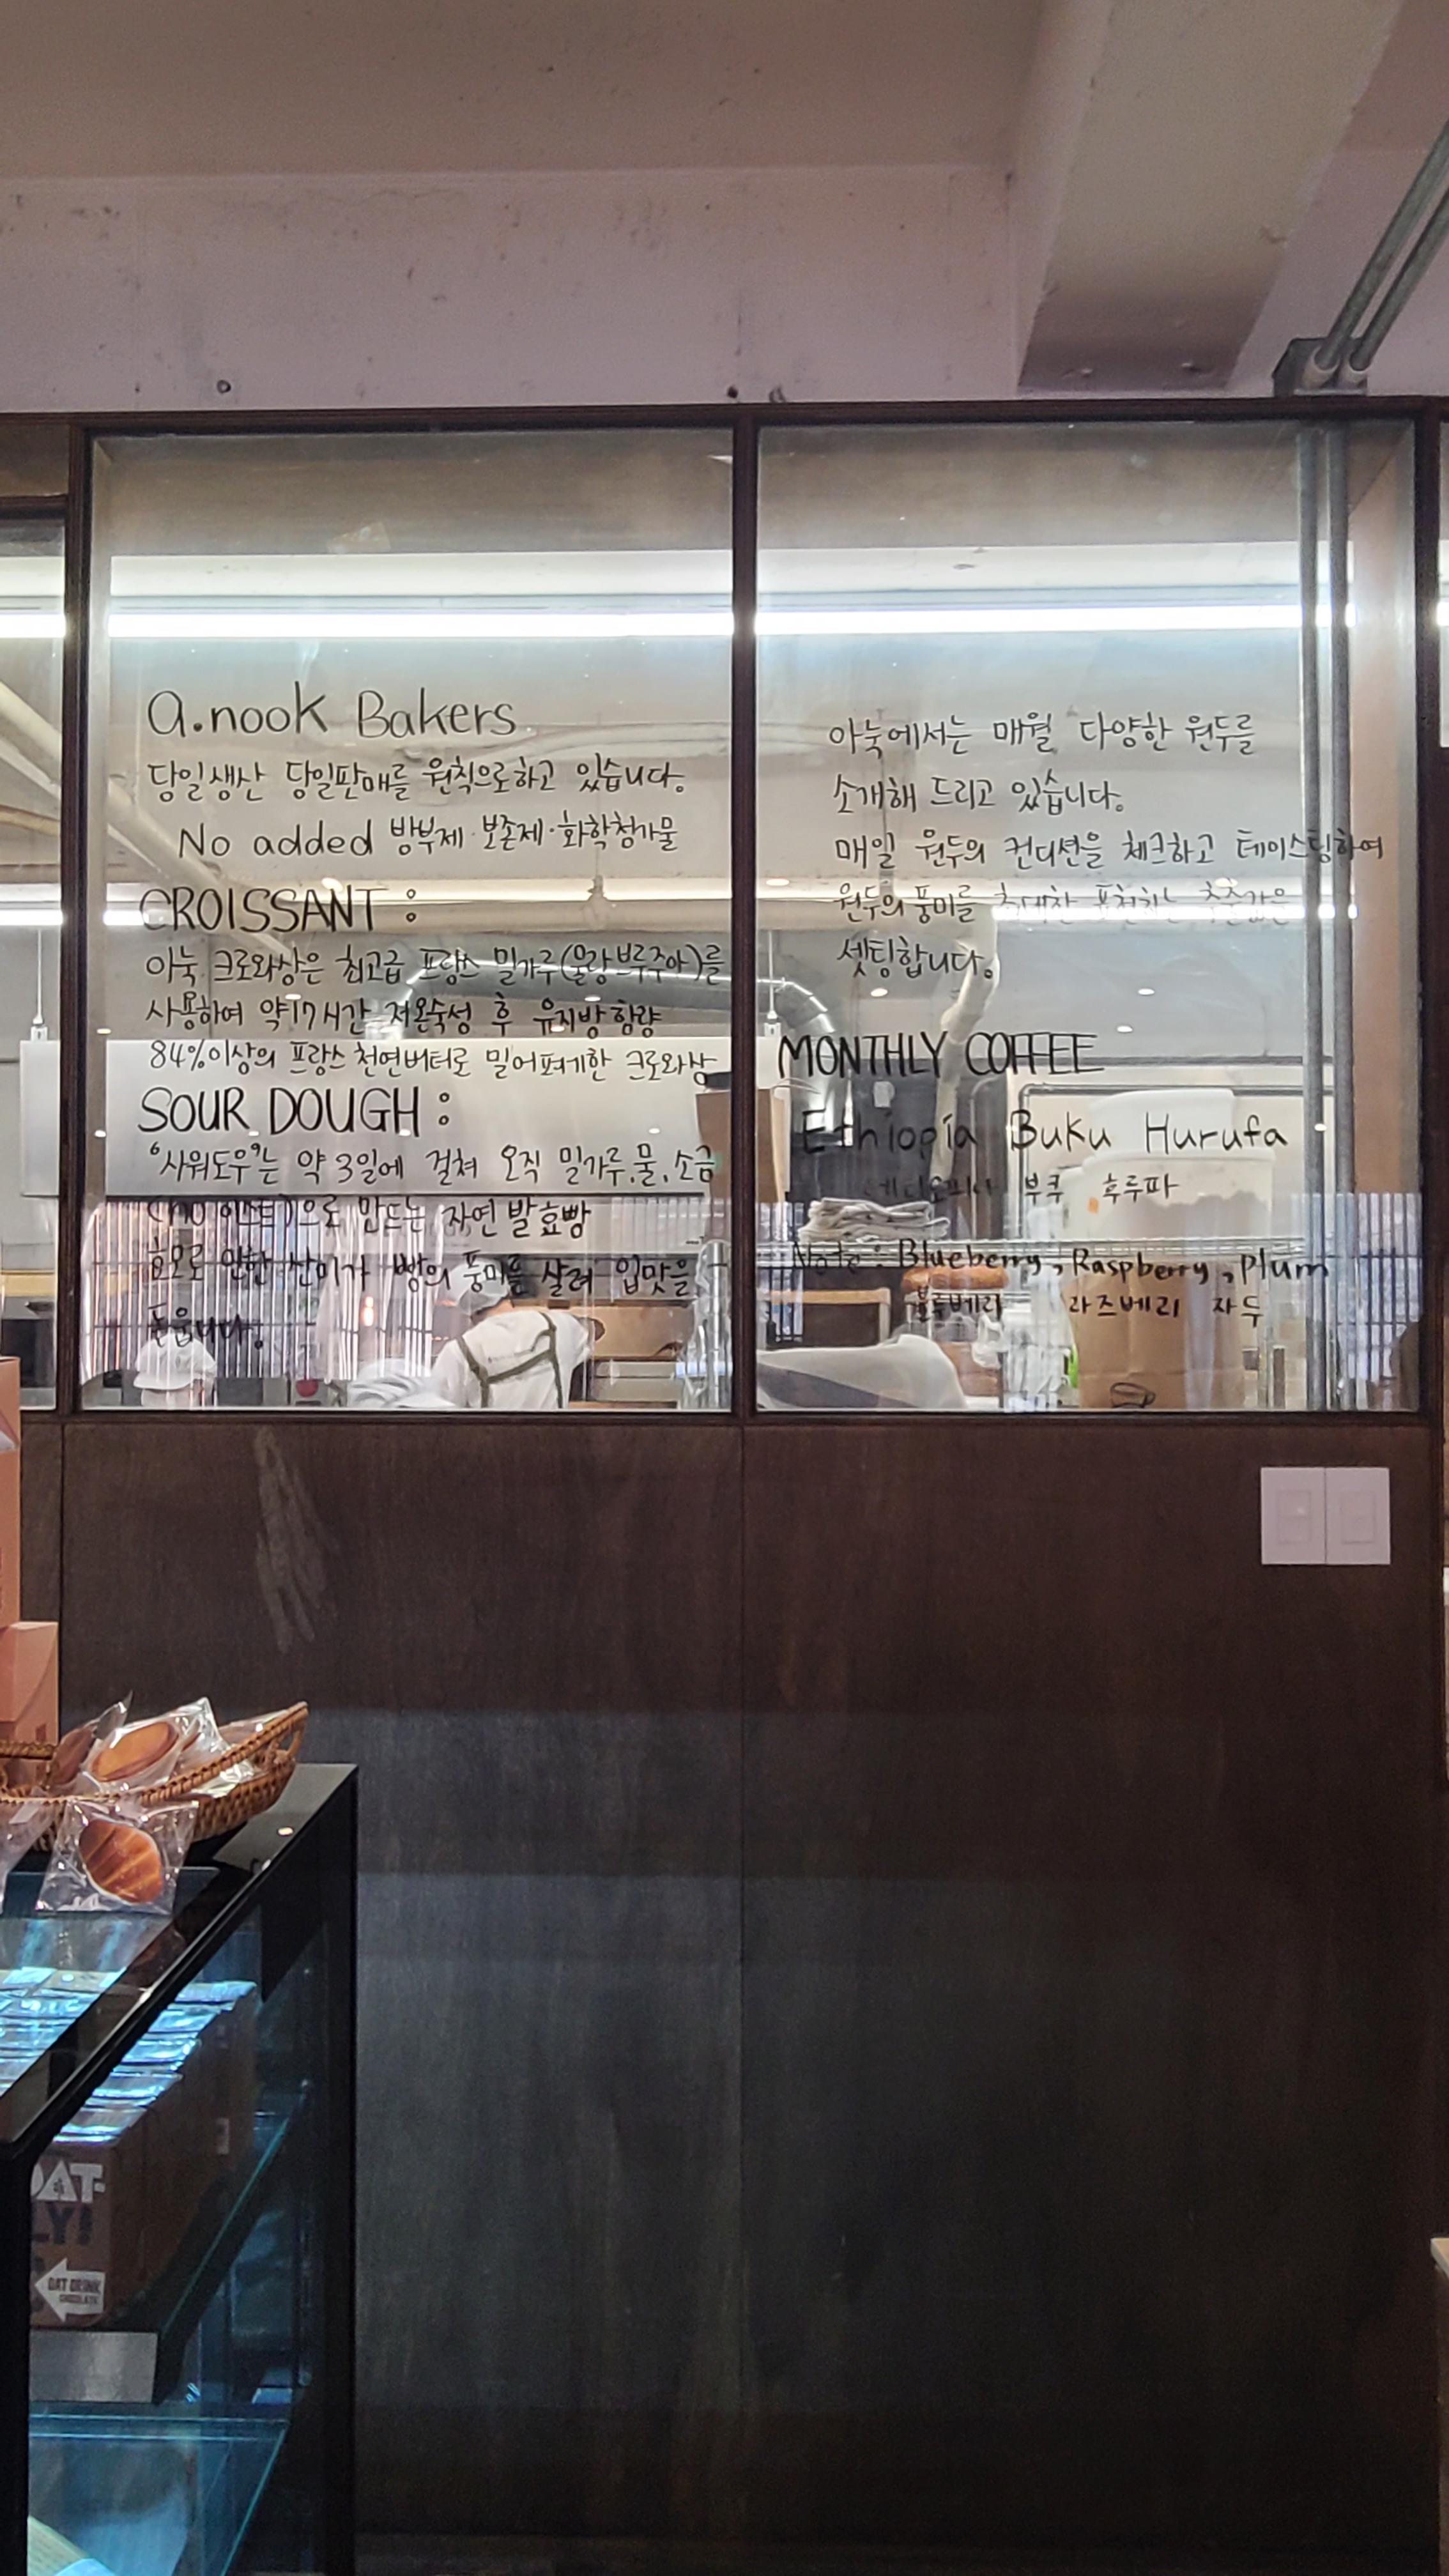 a.nook Bakers
당일생산 당일판매를 원칙으로하고 있습니다.
No added 방부제·보존제·화학첨가물
CROISSANT :
아눅 크로와상은 최고급 프랑스 밀가루(물랑부르주아)를
사용하여 약17시간 저온숙성 후 유지방함량
84%이상의 프랑스 천연버터로 밀어펴기한 크로와상
SOUR DOUGH :
"사워도우"는 약 3일에 걸쳐 오직 밀가루.물.소금
(no 이스트)으로 만드는 자연 발효빵
효모로 인한 산미가 빵의 풍미를 살려 입맛을
돋웁니다.
아눅에서는 매월 다양한 원두를
소개해 드리고 있습니다.
매일 원두의 컨디션을 체크하고 테이스팅하여
원두의 풍미를 최대한 표현하는 추출값은
셋팅합니다.
MONTHLY COFFEE
Ethiopia Buku Hurufa
에티오피아 부쿠 후루파
Note : Blueberry, Raspberry, plum
블루베리 라즈베리 자두
OAT DRINK